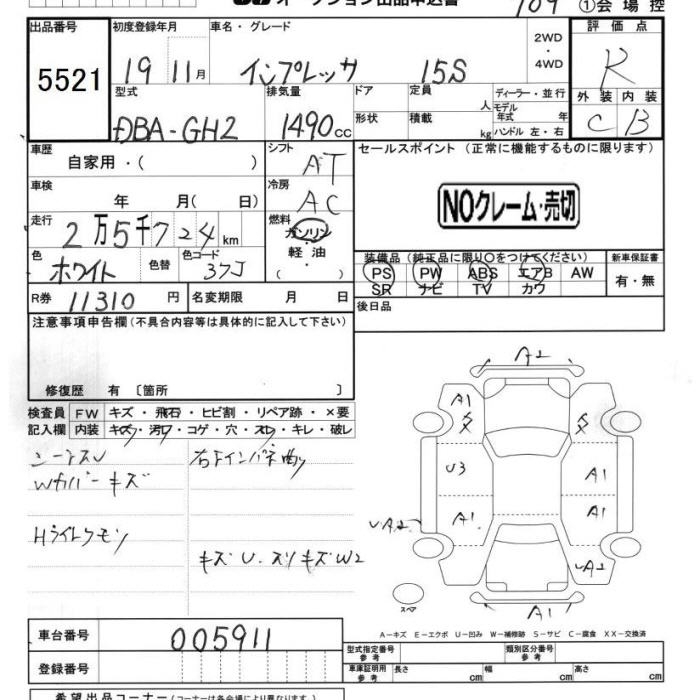 オークション出品申込書 709 ①会場控
出品番号 初度登録年月 車名・グレード 2WD・4WD 評価点
5521 19 11月 インプレッサ 15S R
型式 排気量 ドア 定員 人 ディーラー・並行 外装 内装
DBA-GH2 1490cc 形状 積載 kg モデル年式 年 ハンドル 左・右 C B
車歴 自家用・( ) シフト AT セールスポイント (正常に機能するものに限ります)
車検 年 月( 日) 冷房 AC NOクレーム・売切
走行 2万5千724km 燃料 ガソリン・軽油 ( )
色 ホワイト 色替 色コード 37J
装備品 (純正品に限り○をつけてください) 新車保証書
PS PW ABS エアB AW 有・無
SR ナビ TV カワ
R券 11310円 名変期限 月 日 後日品
注意事項申告欄 (不具合内容等は具体的に記入して下さい)
修復歴 有 〔箇所 〕
検査員 FW キズ・飛石・ヒビ割・リペア跡・×要
記入欄 内装 キズ・汚れ・コゲ・穴・スレ・キレ・破レ
キズ
Hライトクモリ
キズU.スリキズW2
A2
A1
U3 A1
A1 A1
A2 A2
スペア A1
A-キズ E-エクボ U-凹み W-補修跡 S-サビ C-腐食 XX-交換済
車台番号 005911 型式指定番号 参考 類別区分番号 参考
登録番号 車庫証明用 参考 長さ cm 幅 cm 高さ cm
希望出品コーナー (コーナーは各会場により異なります)